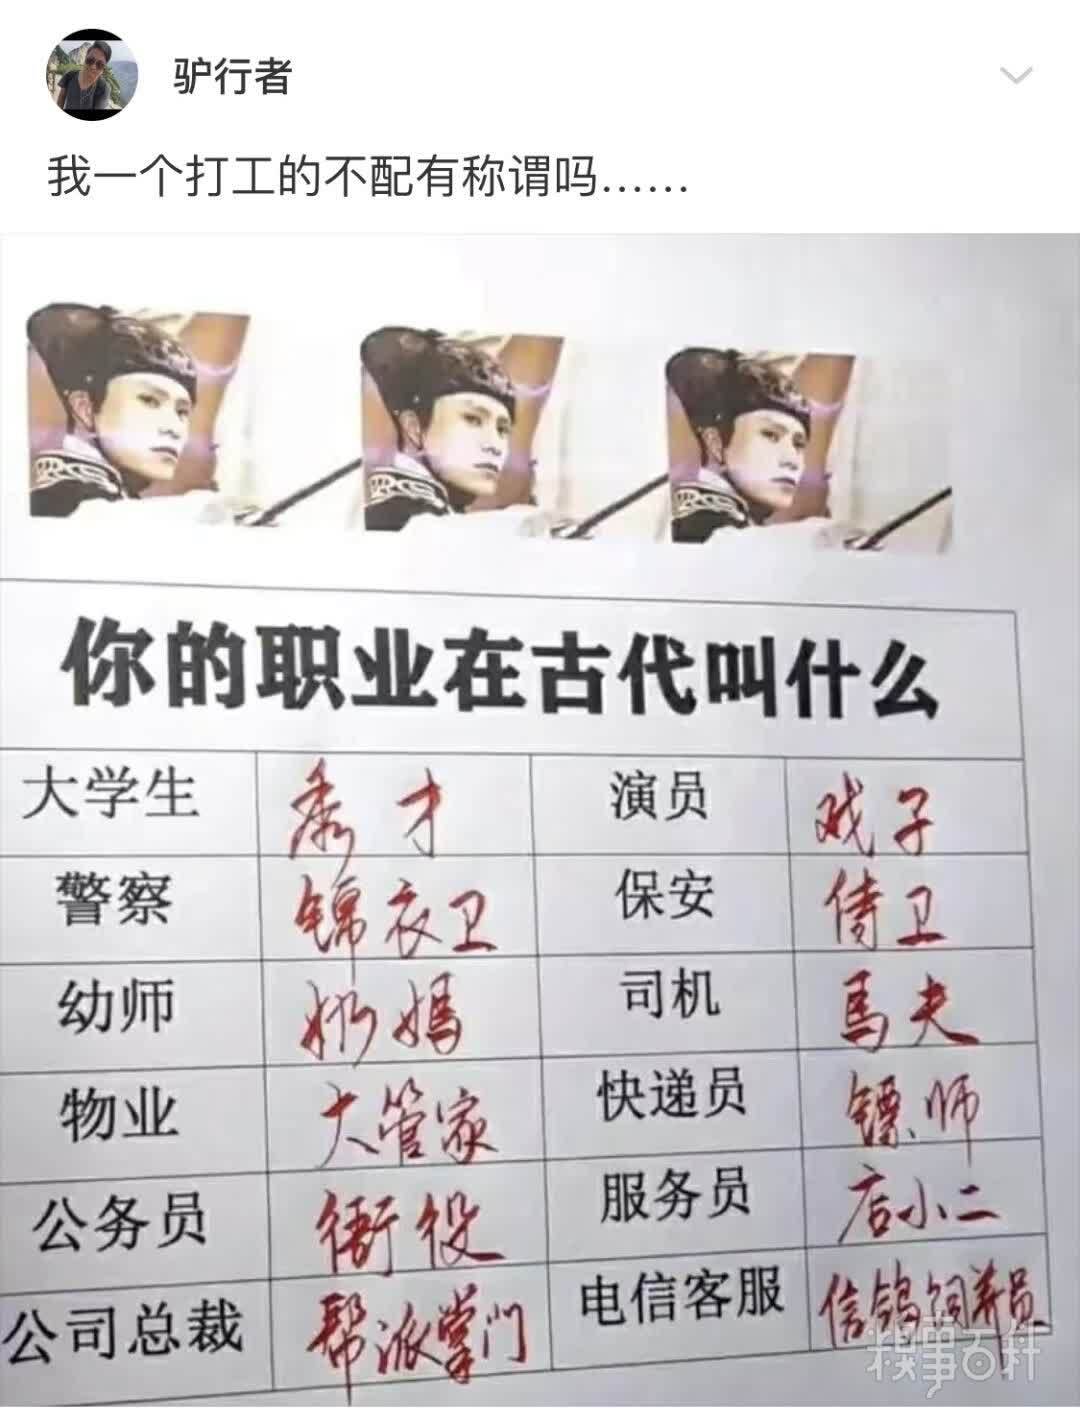 驴行者
我一个打工的不配有称谓吗......
你的职业在古代叫什么
大学生 秀才 演员 戏子
警察 锦衣卫 保安 侍卫
幼师 奶妈 司机 馬夫
物业 大管家 快递员 镖师
公务员 衙役 服务员 店小二
公司总裁 帮派掌门 电信客服 信鸽饲养员
糗事百科